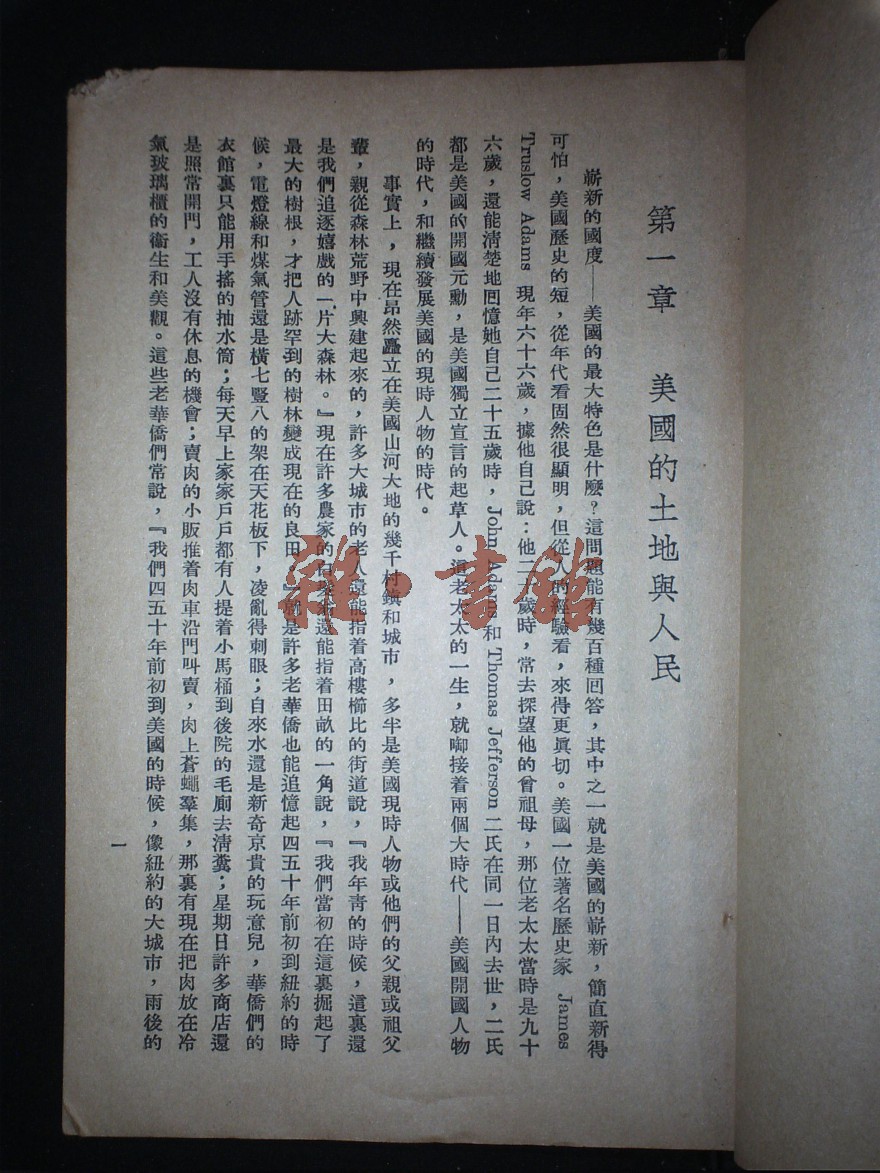 第一章　美國的土地與人民
嶄新的國度——美國的最大特色是什麼？這問題能有幾百種回答，其中之一就是美國的嶄新，簡直新得
可怕，美國歷史的短，從年代看固然很顯明，但從人的經驗看，來得更眞切。美國一位著名歷史家 James
Truslow Adams 現年六十六歲，據他自己說：他二歲時，常去探望他的曾祖母，那位老太太當時是九十
六歲，還能淸楚地回憶她自己二十五歲時，John Adams 和 Thomas Jefferson 二氏在同一日內去世，二氏
都是美國的開國元勳，是美國獨立宣言的起草人。這老太太的一生，就啣接着兩個大時代——美國開國人物
的時代，和繼續發展美國的現時人物的時代。
事實上，現在昂然矗立在美國山河大地的幾千村鎮和城市，多半是美國現時人物或他們的父親或祖父
輩，親從森林荒野中興建起來的，許多大城市的老人還能指着高樓櫛比的街道說，『我年靑的時候，這裏還
是我們追逐嬉戲的一片大森林。』現在許多農家的白髮翁還能指着田畝的一角說，『我們當初在這裏掘起了
最大的樹根，才把人跡罕到的樹林變成現在的良田』就是許多老華僑也能追憶起四五十年前初到紐約的時
候，電燈線和煤氣管還是橫七豎八的架在天花板下，凌亂得刺眼；自來水還是新奇京貴的玩意兒，華僑們的
衣館裏只能用手搖的抽水筒；每天早上家家戶戶都有人提着小馬桶到後院的毛廁去淸糞；星期日許多商店還
是照常開門，工人沒有休息的機會；賣肉的小販推着肉車沿門叫賣，肉上蒼蠅羣集，那裏有現在把肉放在冷
氣玻璃櫃的衞生和美觀。這些老華僑們常說，『我們四五十年前初到美國的時候，像紐約的大城市，雨後的
一
雜·書館